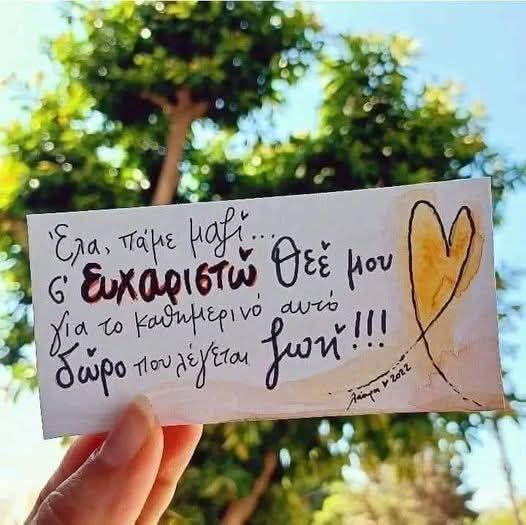 Έλα, πάμε μαζί...
σ' ευχαριστώ Θεέ μου
για το καθημερινό αυτό
δώρο που λέγεται ζωή!!!
2022